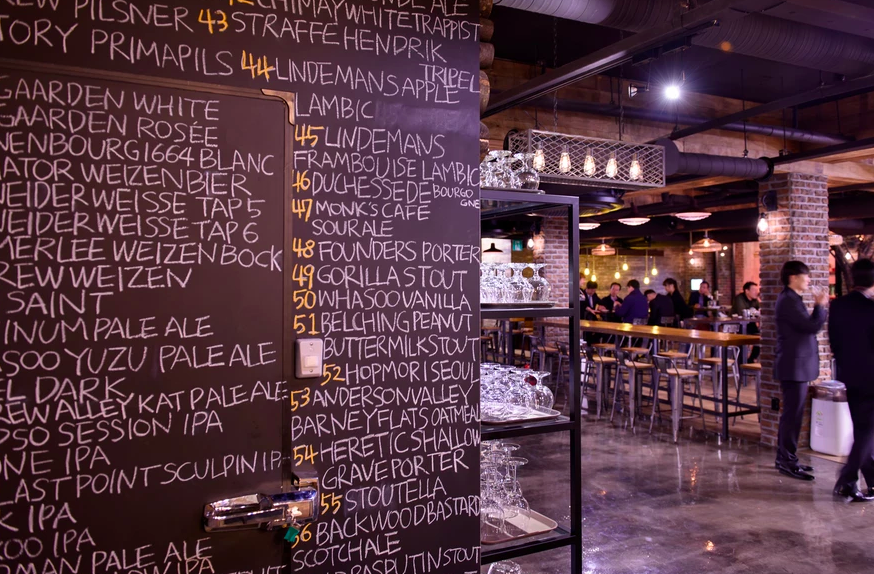 PILSNER 43 STRAFFE HENDRIK
CHIMAY WHITE TRAPPIST
TORY PRIMAPILS 44 LINDEMANS APPLE
TRIPEL
LAMBIC
45 LINDEMANS
FRAMBOUISE LAMBIC
46 DUCHESSE DE BOURGO
GNE
47 MONK'S CAFE
SOUR ALE
48 FOUNDERS PORTER
49 GORILLA STOUT
50 WHASOO VANILLA
51 BELCHING PEANUT
BUTTERMILK STOUT
52 HOPMORI SEOUL
53 ANDERSON VALLEY
BARNEY FLATS OATMEAL
54 HERETIC SHALLOW
GRAVE PORTER
55 STOUTELLA
56 BACKWOOD BASTARD
SCOTCH ALE
RASPUTIN STOUT
GAARDEN WHITE
GAARDEN ROSÉE
NENBOURG 1664 BLANC
ATOR WEIZENBIER
NEIDER WEISSE TAP 5
NEIDER WEISSE TAP 6
MERLEE WEIZEN BOCK
REW WEIZEN
SAINT
INUM PALE ALE
ASOO YUZU PALE ALE
EL DARK
REW ALLEY KAT PALE ALE
SSO SESSION IPA
ONE IPA
AST POINT SCULPIN IP
K IPA
KOO IPA
OMAN PALE ALE
LOW IPA